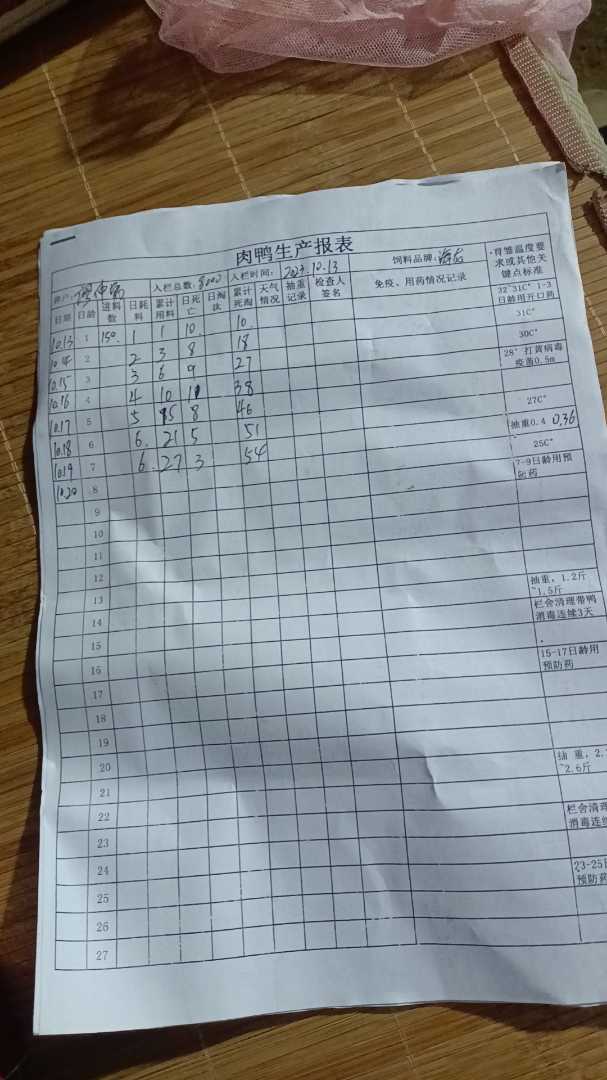 肉鸭生产报表
养户: 入栏总数:8000 入栏时间: 2023.10.13 饲料品牌: ·育雏温度要求或其他关键点标准
日期 日龄 进料数 日耗料 累计用料 日死亡 日淘汰 累计死淘 天气情况 抽重记录 检查人签名 免疫、用药情况记录 32°31C° 1-3日龄用开口药
10.13 1 150. 1 1 10 10 31C°
10.14 2 2 3 8 18 30C°
10.15 3 3 6 9 27 28° 打黄病毒疫苗0.5m
10.16 4 4 10 11 38
10.17 5 5 15 8 46 27C°
10.18 6 6. 21 5 51 抽重0.4 0.36
10.19 7 6. 27 3 54 25C°
10.20 8 7-9日龄用预防药
9
10
11
12
13 抽重，1.2斤~1.5斤
14 栏舍清理带鸭消毒连续3天
15
16 15-17日龄用预防药
17
18
19
20 抽重，2.
~2.6斤
21
22 栏舍清理
消毒连续
23
24 23-25日
预防药
25
26
27